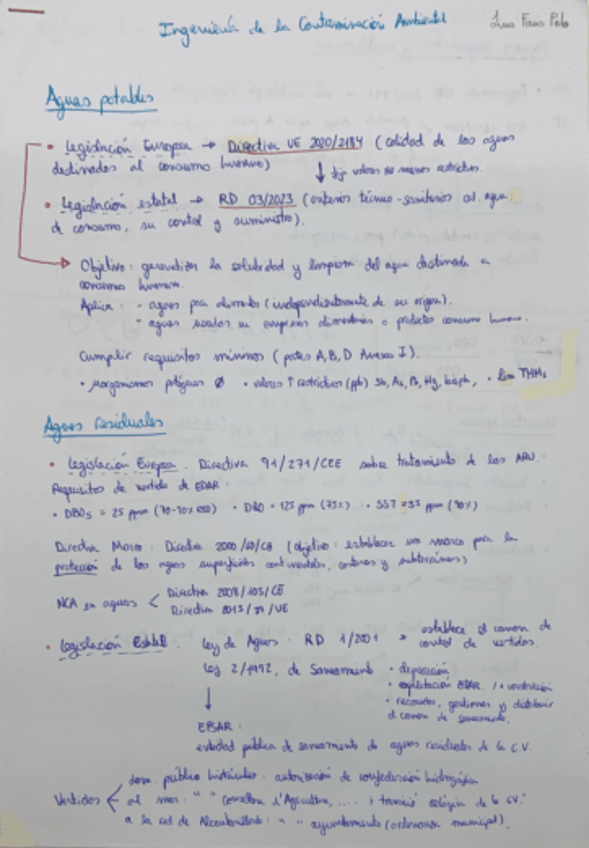 Ingeniería de la Contaminación Ambiental
Aguas potables
• Legislación Europea → Directiva UE 2020/2184 (calidad de las aguas
destinadas al consumo humano) ↓ fija valores no menos restrictivos.
• Legislación estatal → RD 03/2023 (criterios técnico-sanitarios al agua
de consumo, su control y suministro).
Objetivo: garantizar la salubridad y limpieza del agua destinada a
consumo humano.
Aplica: - aguas para alimentos (independientemente de su origen).
- aguas usadas en empresas alimentarias o productos consumo humano.
Cumplir requisitos mínimos (partes A, B, D Anexo I).
• Microorganismos patógenos Ø • valores ↑ restrictivos (ppb) Sb, As, Pb, Hg, • THMs
Aguas residuales
• Legislación Europea. Directiva 91/271/CEE sobre tratamiento de las ARU.
Requisitos de vertido de EDAR.
• DBO5 = 25 ppm • DQO = 125 ppm (75%) • SST = 35 ppm (90%)
Directiva Marco: Directiva 2000/60/CE (objetivo: establecer un marco para la
protección de las aguas superficiales continentales, costeras y subterráneas)
NCA en aguas < Directiva 2008/105/CE
Directiva 2013/39/UE
• Legislación Estatal. Ley de Aguas: RD 1/2001 → establece el canon de
control de vertidos.
Ley 2/1992, de Saneamiento • depuración
• explotación EDAR / • construcción
• recauda, gestionar y distribuir
el canon de saneamiento.
↓
EPSAR:
entidad pública de saneamiento de aguas residuales de la C.V.
Vertidos < dom. público hidráulico: autorización de confederación hidrográfica
al mar: " " conselleria d'Agricultura, ..... i transició ecológica de la CV.
a la red de Alcantarillado: " " ayuntamiento (ordenanza municipal).